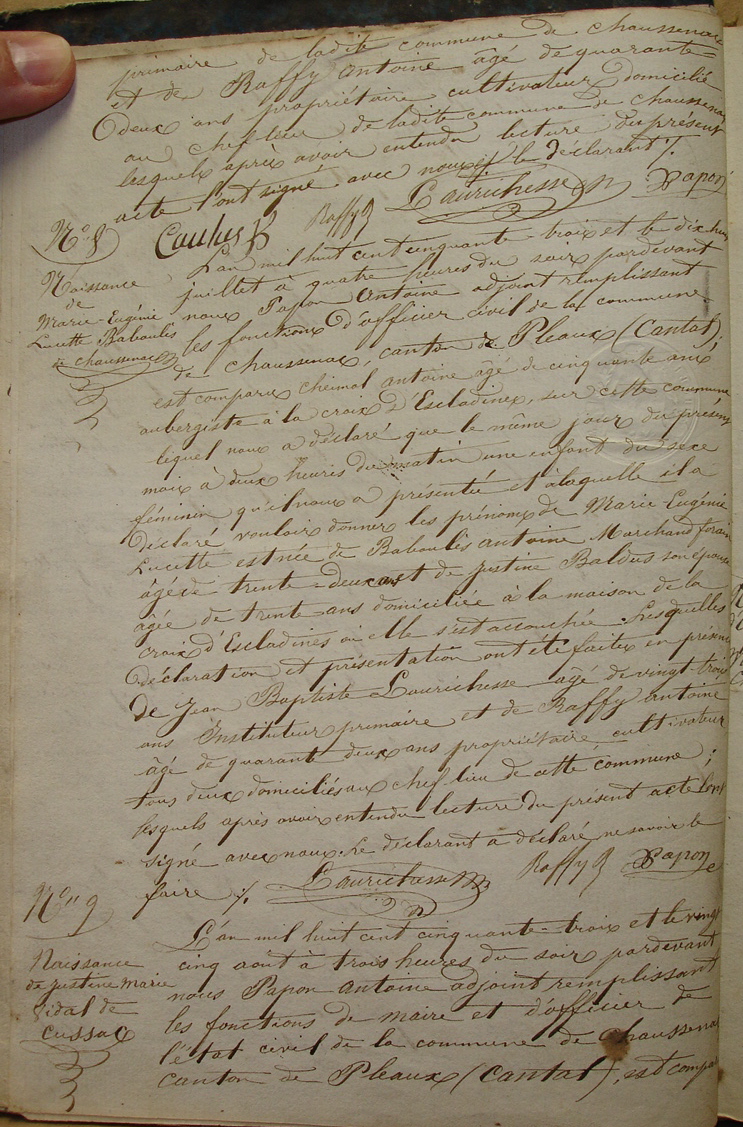 primaire de ladite commune de chaussenac
et de Raffy Antoine âgé de quarante
deux ans propriétaire cultivateur domicilié
au chef lieu de ladite commune de chaussenac
lesquels après avoir entendu lecture du présent
acte l'ont signé avec nous et le déclarant ./.
Raffy Laurichesse Papon
N° 8
Naissance
de
Marie-Eugénie
Lucette Baboulès
de chaussenac
L'an mil huit cent cinquante-trois et le dix huit
juillet à quatre heures du soir pardevant
nous Papon Antoine adjoint remplissant
les fonctions d'officier civil de la commune
de chaussenac, canton de Pleaux (Cantal),
est comparu cheimol antoine agé de cinquante ans
aubergiste à la croix d'Escladines, sur cette commune
lequel nous a déclaré que le même jour du présent
mois à deux heures du matin une enfant du sexe
féminin qu'il nous a présentée et à laquelle il a
déclaré vouloir donner les prénoms de Marie Eugénie
Lucette est née de Baboulès antoine Marchand forain
âgé de trente-deux ans et de Justine Baldus son épouse
agée de trente ans domiciliée à la maison de la
croix d'Escladines où elle s'est accouchée. Lesquelles
déclaration et présentation ont été faites en présence
de Jean Baptiste Laurichesse agé de vingt-trois
ans Instituteur primaire et de Raffy antoine
âgé de quarante deux ans propriétaire cultivateur
tous deux domiciliés au chef-lieu de cette commune ;
lesquels après avoir entendu lecture du présent acte l'ont
signé avec nous. Le déclarant a déclaré ne savoir le
faire ./. Laurichesse Raffy Papon
N° 9
Naissance
de justine marie
Vidal de
cussac
L'an mil huit cent cinquante-trois et le vingt
cinq août à trois heures du soir pardevant
nous Papon Antoine adjoint remplissant
les fonctions de maire et d'officier de
l'état civil de la commune de Chaussenac
canton de Pleaux (Cantal), est compa